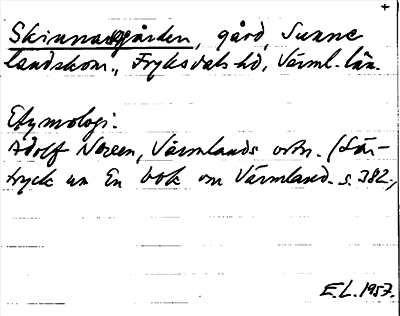 +
Skinnargården, gård, Sunne
landskom., Fryksdals hd, Värml. län.
Etymologi:
Adolf Noreen, Värmlands ortn. (Sär-
tryck ur En bok om Värmland. s. 382.,
E.L. 1957.